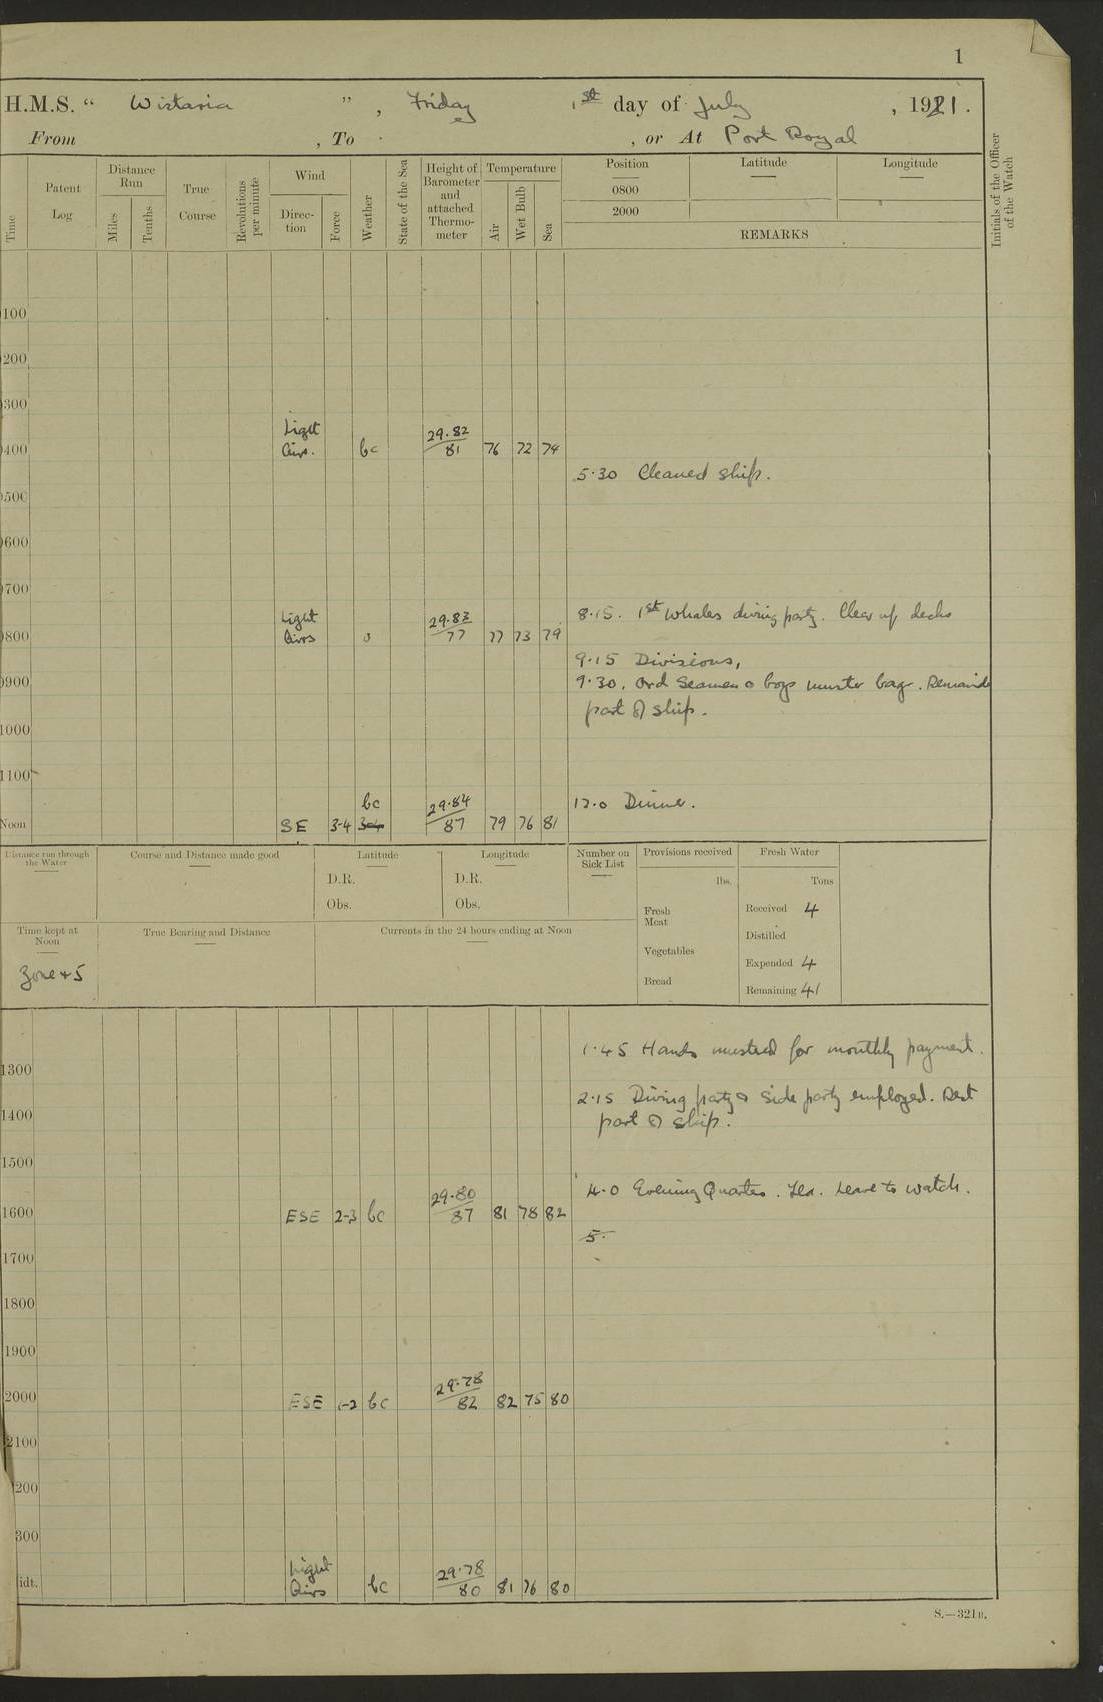 1
H.M.S. “ Wistaria ” , Friday , 1st day of July , 1921 .
From , To , or At Port Royal
Time
Patent Log
Distance Run
Miles
Tenths
True Course
Revolutions per minute
Wind
Direc- tion
Force
Weather
State of the Sea
Height of Barometer and attached Thermo- meter
Temperature
Air
Wet Bulb
Sea
Position
0800
2000
Latitude
Longitude
REMARKS
Initials of the Officer of the Watch
0100
0200
0300
Light
0400 Airs. bc 29.82 / 81 76 72 74
5.30 Cleaned ship.
0500
0600
0700
8.15. 1st Whaler diving party. Clear up decks
Light
0800 Airs 29.83 / 77 77 73 79
9.15 Divisions,
0900 9.30. Ord Seamen & boys muster bags. Remainder
part of ship.
1000
1100
12.0 Dinner.
bc
Noon SE 3-4 3-4 29.84 / 87 79 76 81
Distance run through the Water
Course and Distance made good
Latitude
D.R.
Obs.
Longitude
D.R.
Obs.
Number on Sick List
Provisions received
lbs.
Fresh Meat
Vegetables
Bread
Fresh Water
Tons
Received 4
Distilled
Expended 4
Remaining 41
Time kept at Noon
Zone +5
True Bearing and Distance
Currents in the 24 hours ending at Noon
1.45 Hands mustered for monthly payment.
1300
2.15 Diving party & Side party employed. Rest
1400 part of ship.
1500
4.0 Evening Quarters. Tea. Leave to watch.
1600 ESE 2-3 bc 29.80 / 87 81 78 82
5.
1700
1800
1900
2000 ESE 1-2 bc 29.78 / 82 82 75 80
2100
200
300
Light
idt. Airs bc 29.78 / 80 81 76 80
S.—321B.